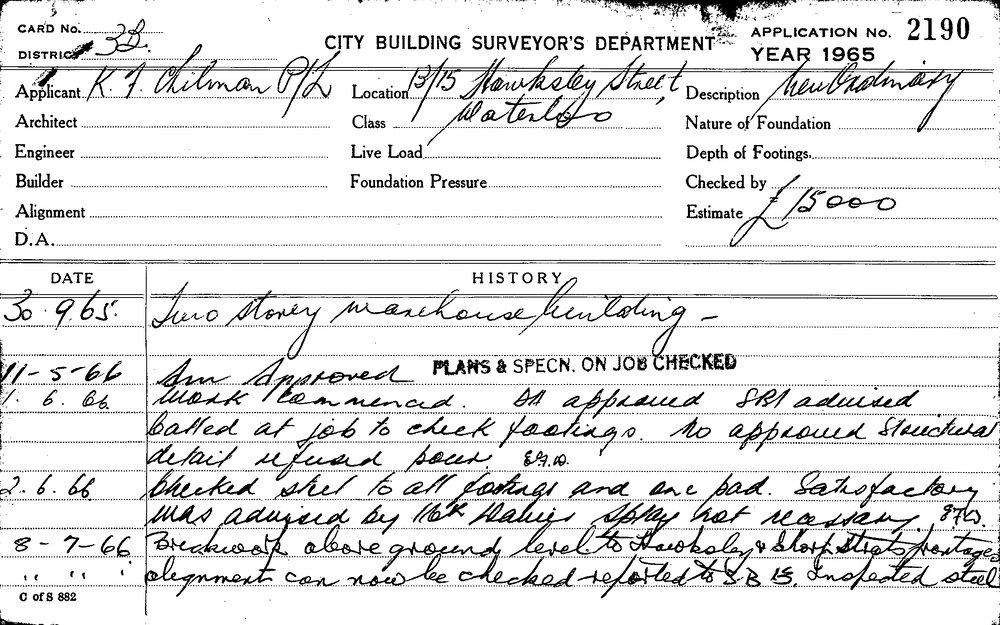 CARD No.
DISTRICT 3B.
CITY BUILDING SURVEYOR'S DEPARTMENT
APPLICATION No. 2190
YEAR 1965
Applicant K. F. Chilman P/L Location 13/15 Hawksley Street, Description New Ordinary
Architect Class Waterloo Nature of Foundation
Engineer Live Load Depth of Footings
Builder Foundation Pressure Checked by
Alignment Estimate £15000
D.A.
DATE HISTORY
30.9.65. Two storey warehouse building -
11-5-66 Approved PLANS & SPECN. ON JOB CHECKED
1.6.66 Work commenced. approved advised
Called at job to check footings. No approved structural
detail refused pour.
2.6.66 Checked steel to all footings and one pad. Satisfactory
was advised by not necessary.
8-7-66 Brickwork above ground level to Hawksley & Street frontages
" " " alignment can now be checked reported to Inspected steel
C of S 882